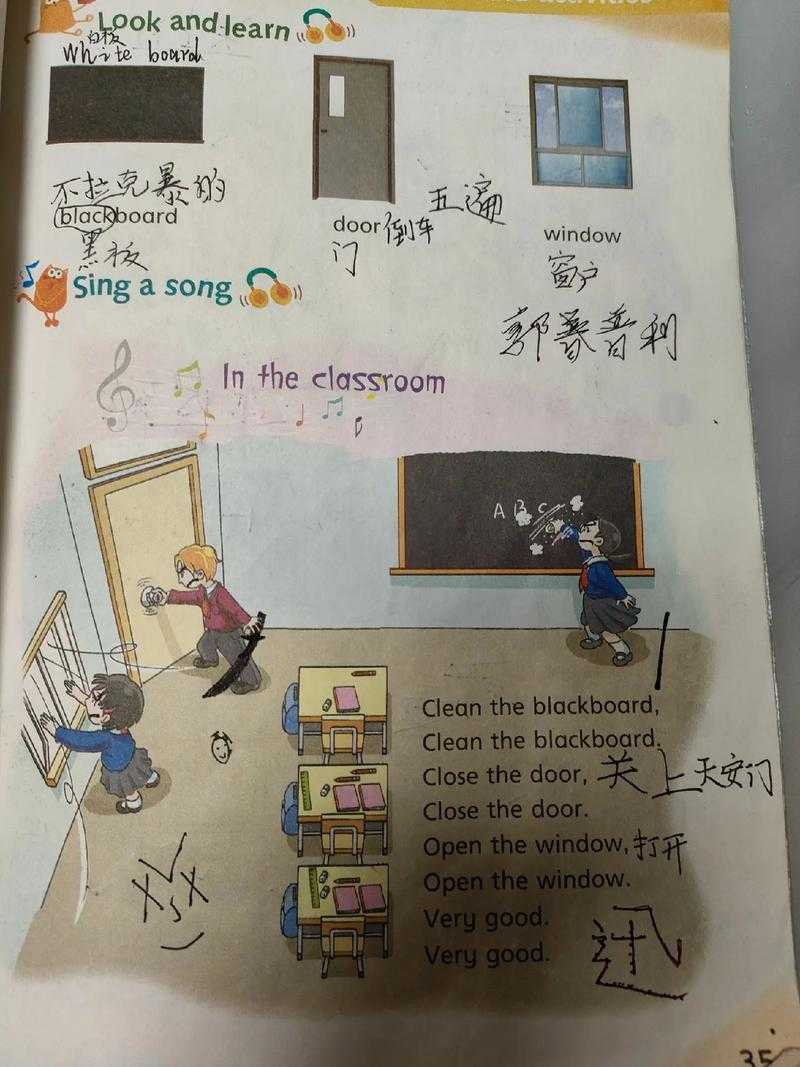 Look and learn
白板
White board
不拉克暴的
blackboard
黑板
door 倒车
门
五遍
window
窗户
Sing a song
In the classroom
A B C
Clean the blackboard,
Clean the blackboard.
Close the door, 关上天安门
Close the door.
Open the window, 打开
Open the window.
Very good.
Very good.
迅
35